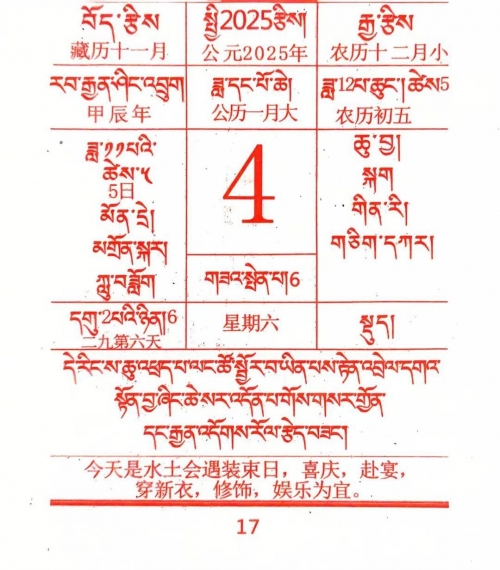 བོད་རྩིས
སྤྱི2025རྩིས།
རྒྱ་རྩིས
藏历十一月
公元2025年
农历十二月小
རབ་རྒྱན་ཤིང་འབྲུག
ཟླ་དང་པོ་ཆེ།
ཟླ་12པ་ཆུང་། ཚེས5
甲辰年
公历一月大
农历初五
ཟླ་༡༡པའི་
ཚེས་༥
5日
མོན་དྲེ།
མགྲོན་སྐར།
ཀླུ་བ་རློག
4
གཟའ་སྤེན་པ།6
ཆུ་བྱ།
སྐག
གིན་རི།
གཅིག་དཀར།
དགུ་2པའི་ཉིན།6
二九第六天
星期六
སྡུད།
དེ་རིང་ས་ཆུ་འཕྲད་པ་ལང་ཚོ་སྦྱོར་བ་ཡིན་པས་རྟེན་འབྲེལ་དགའ་
སྟོན་བྱ་ཞིང་ཆེ་སར་འདོན་པ་གོས་གསར་གྱོན་
དང་རྒྱན་འདོགས་རོལ་རྩེད་བཟང།
今天是水土会遇装束日，喜庆，赴宴，
穿新衣，修饰，娱乐为宜。
17